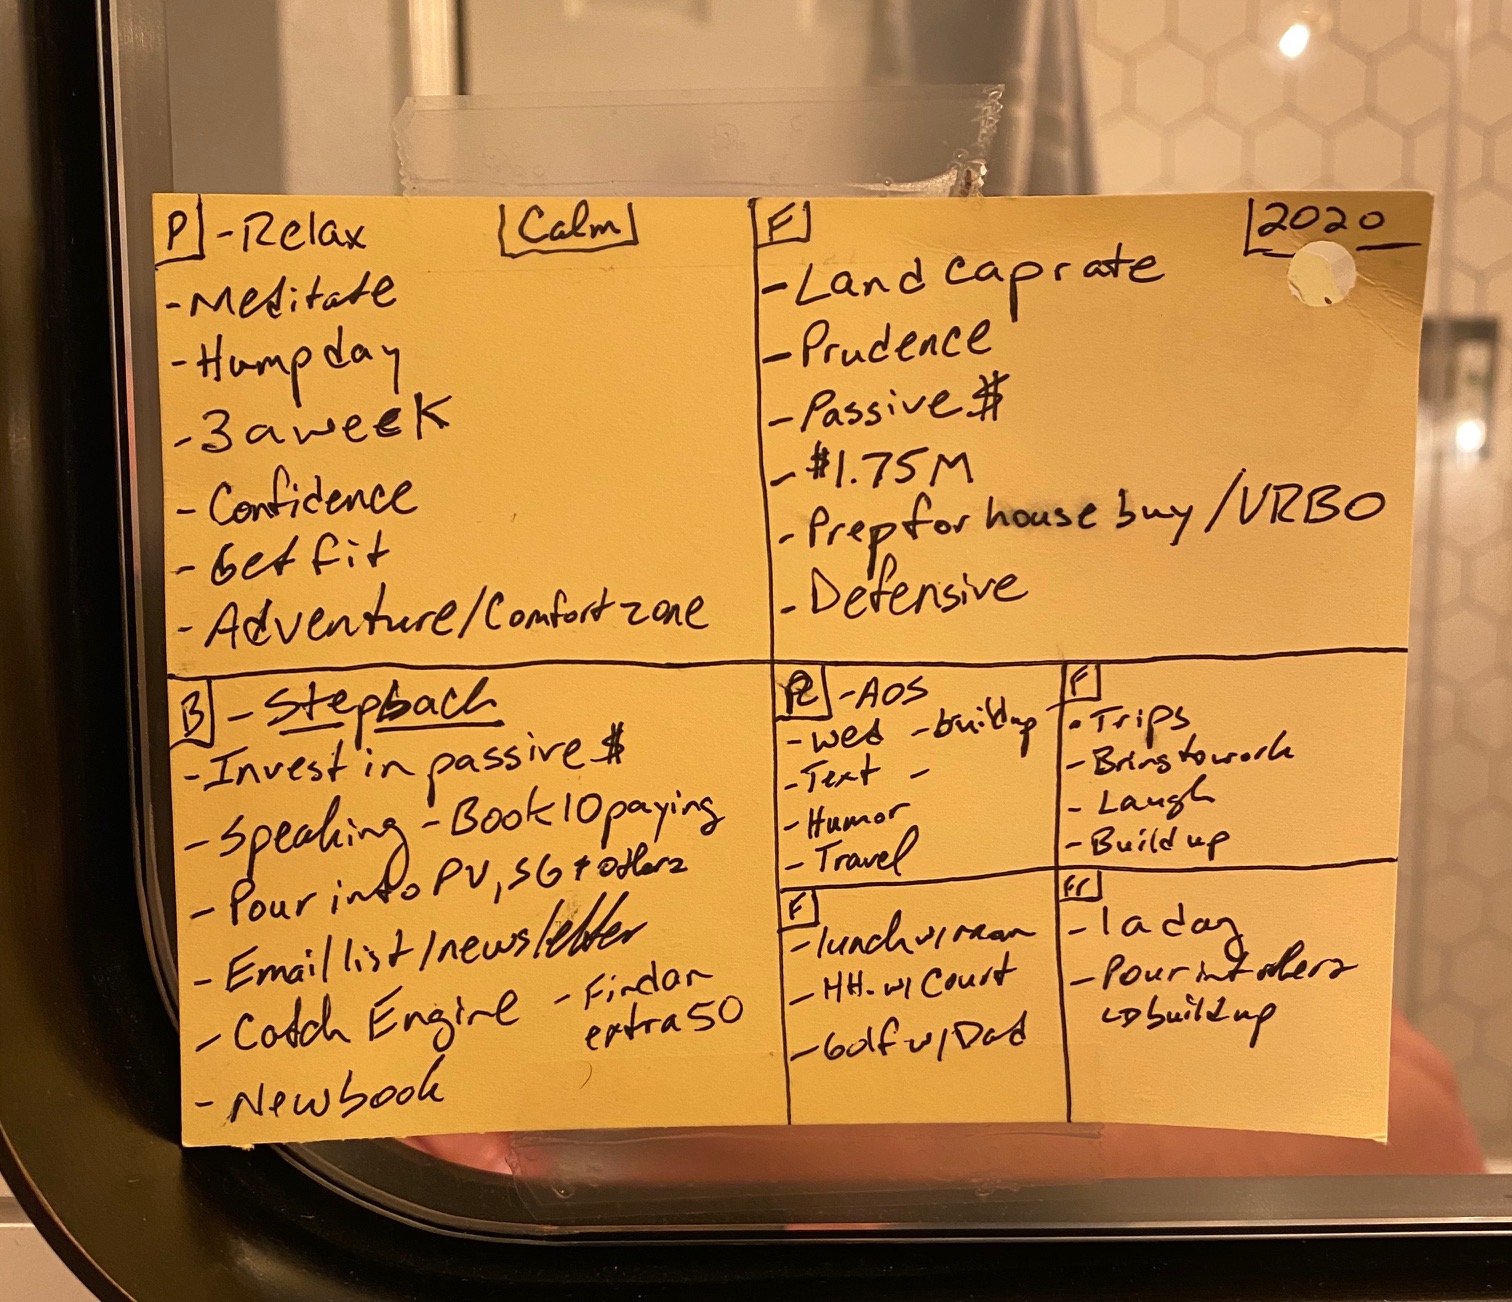 P - Relax
Calm
- Meditate
- Humpday
- 3 a week
- Confidence
- Get fit
- Adventure/Comfort zone
F
2020
- Land cap rate
- Prudence
- Passive $
- $1.75M
- Prep for house buy /VRBO
- Defensive
B - Stepback
- Invest in passive $
- Speaking - Book 10 paying
- Pour into PV, SG + others
- Email list/newsletter
- Catch Engine - Find an
extra 50
- New book
- AOS
- Wed - build up
- Text -
- Humor
- Travel
F
- Trips
- Bring to work
- Laugh
- Build up
F
- lunch w/
- HH. w/ Court
- Golf w/ Dad
Fr
- 1 a day
- Pour into others
↳ build up